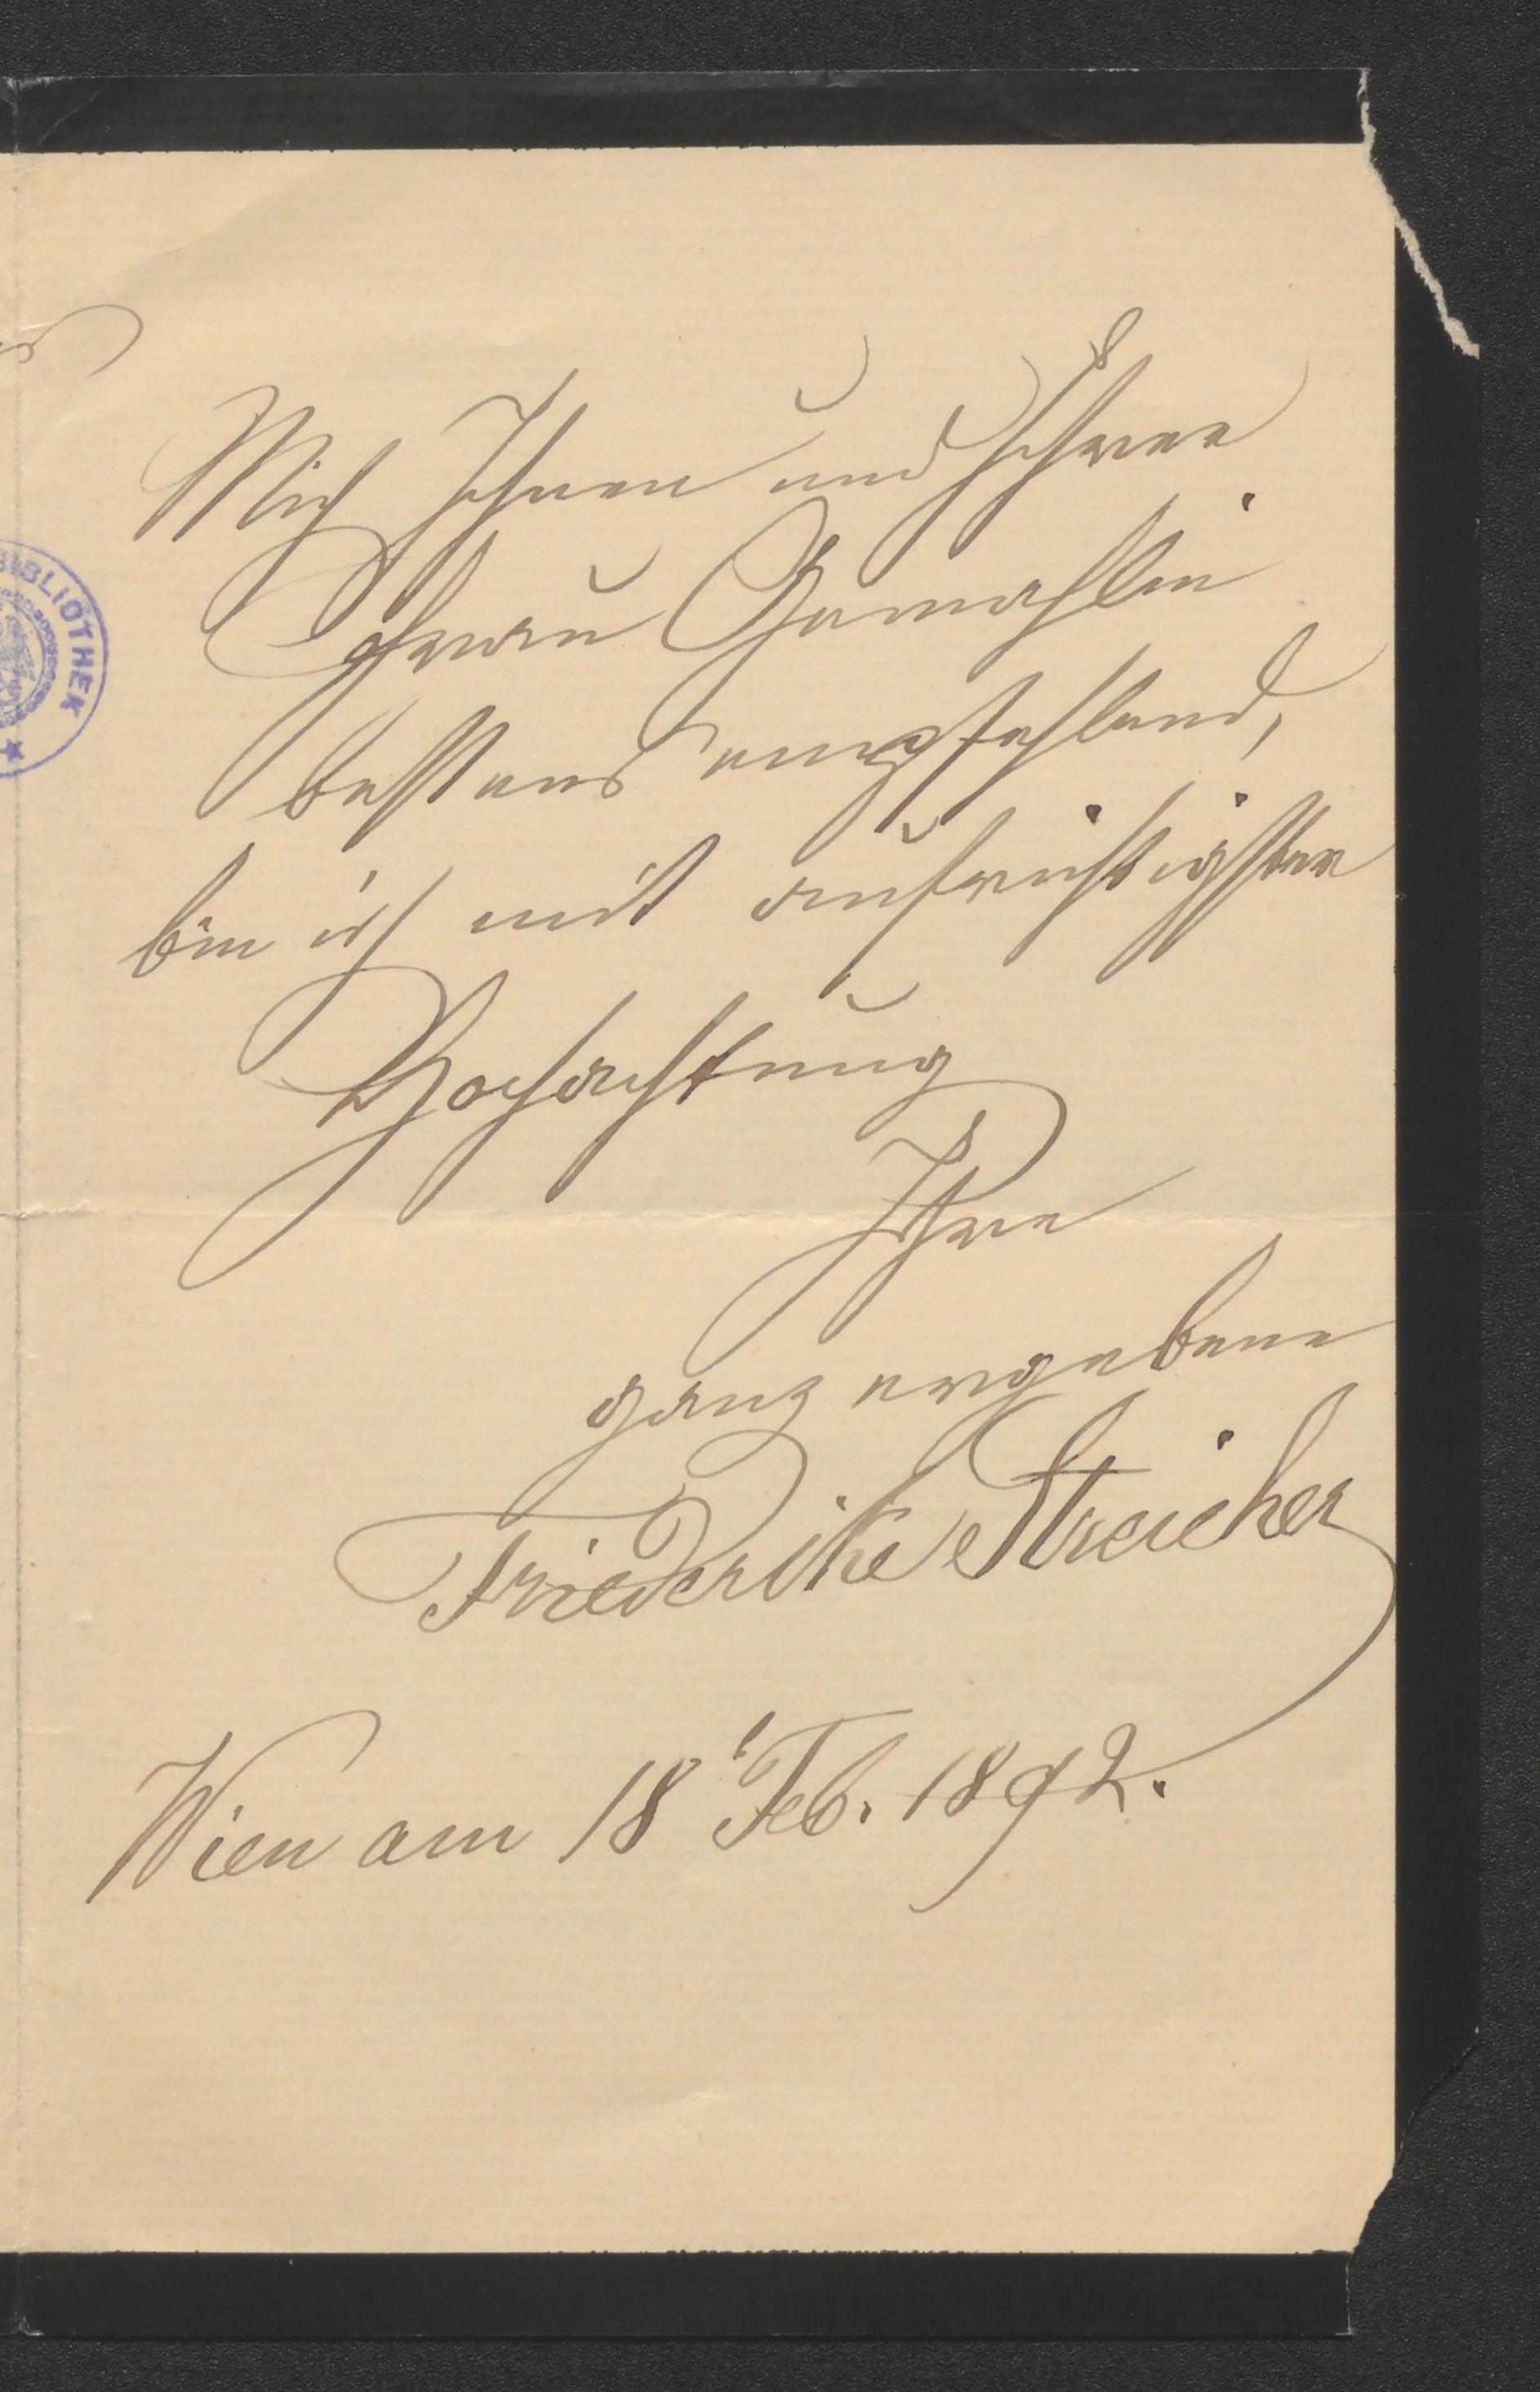 Mich Ihnen und Ihrer
Frau Gemahlin
bestens empfehlend,
bin ich mit aufrichtigster
Hochachtung
Ihre
ganz ergebene
Friederike Streicher
Wien am 18 Feb. 1892.
BIBLIOTHEK